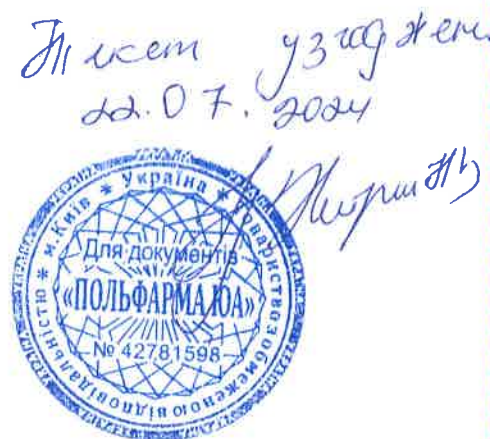 Текст узгоджен
22.07.2024
м.Київ * Україна * Товариство з обмеженою відповідальністю *
Для документів
«ПОЛЬФАРМА ЮА»
№ 42781598